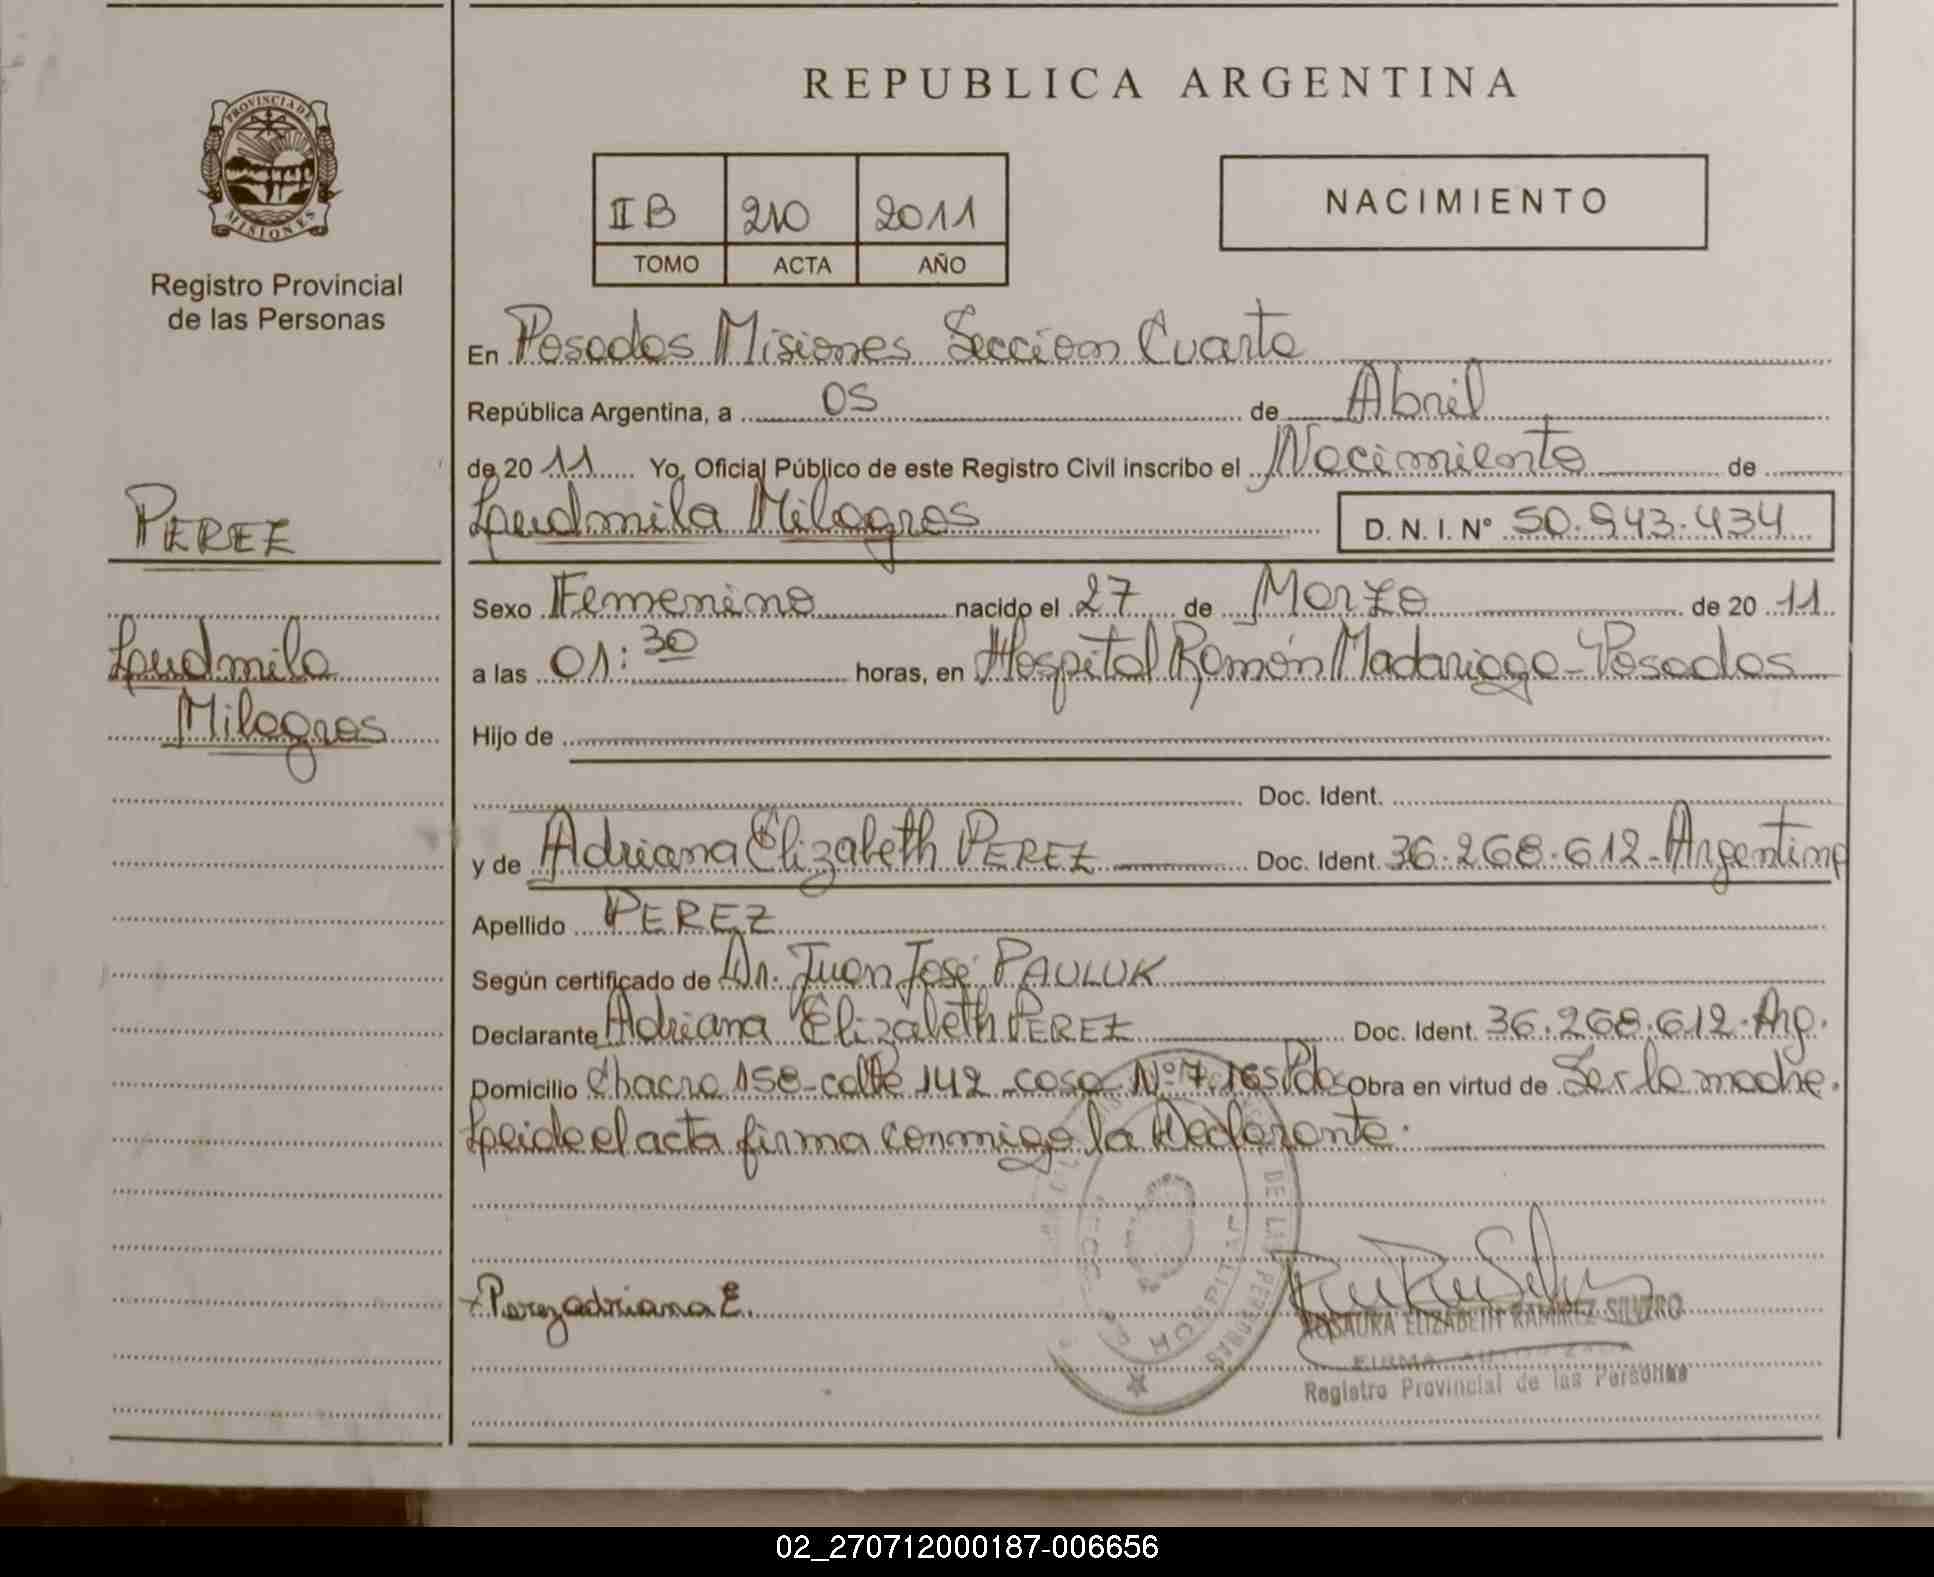 PROVINCIA DE
MISIONES
Registro Provincial
de las Personas
PEREZ
Leudmila
Milagros
REPUBLICA ARGENTINA
II B 210 2011
TOMO ACTA AÑO
NACIMIENTO
En Posadas Misiones Sección Cuarta
República Argentina, a 05 de Abril
de 20 11 Yo, Oficial Público de este Registro Civil inscribo el Nacimiento de
Leudmila Milagros D. N. I. Nº 50.943.434
Sexo Femenino nacido el 27 de Marzo de 20 11
a las 01:30 horas, en Hospital Ramón Madariaga - Posadas
Hijo de
Doc. Ident.
y de Adriana Elizabeth PEREZ Doc. Ident. 36.268.612 - Argentina
Apellido PEREZ
Según certificado de Dr. Juan José PAULUK
Declarante Adriana Elizabeth PEREZ Doc. Ident. 36.268.612. Arg.
Domicilio Chacra 158 - calle 142 casa Nº 7.165 Pdas Obra en virtud de Ser la madre.
Leida el acta firma conmigo la Declarante.
DE LAS PERSONAS
HOSPITAL
Perez adriana E.
ROSAURA ELIZABETH RAMIREZ SILVERO
FIRMA AUTORIZADA
Registro Provincial de las Personas
02_270712000187-006656